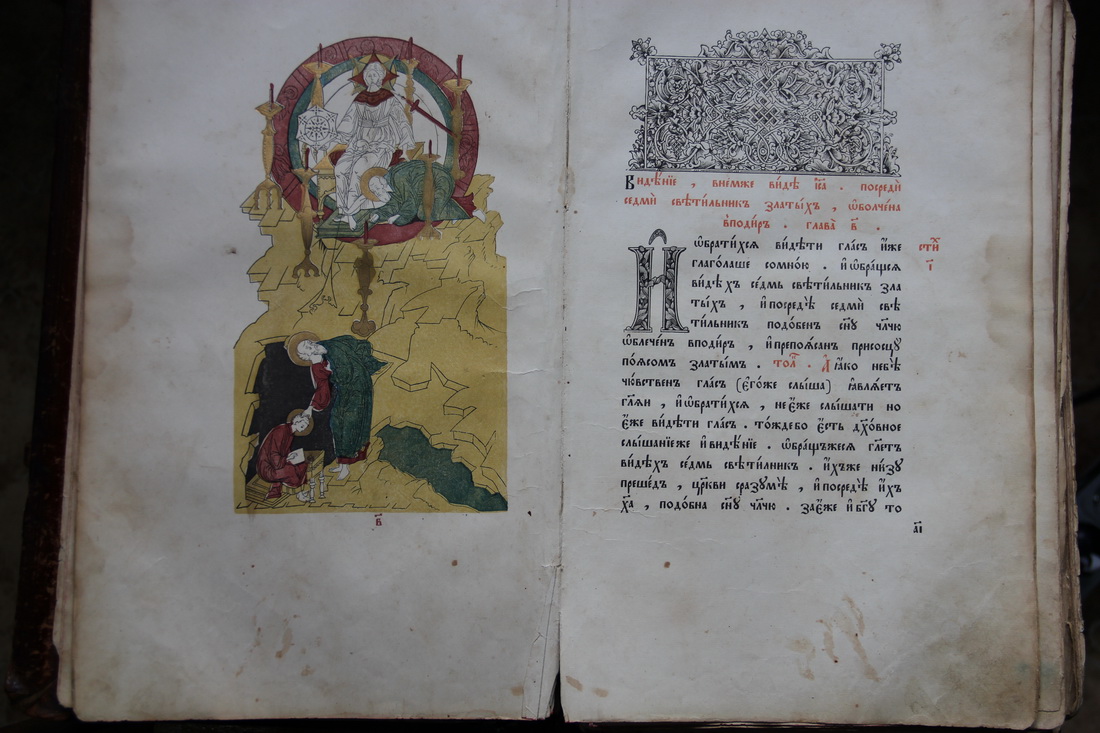 в҃
Видѣ́нїе , внемже видѣ̀ і҆са . посредѝ
седмѝ свѣти́льник златы́хъ , ѡ҆болче́на
вподи́ръ . глава̀ в҃ .
И҆ѡ҆брати́хся ви́дѣти гла́съ и҆́же
глаго́лаше сомно́ю . и҆ ѡ҆бра́щся
ви́дѣхъ се́дмь свѣти́льникъ зла
ты́хъ , и҆ посредѣ̀ седмѝ свѣ
ти́льникъ подо́бенъ сн҃у чл҃чю
ѡ҆блече́нъ вподи́ръ , и҆ препоя́санъ присосцу̀
по́ясом златы́мъ . то́л . А҆ я҆́ко небѣ̀
чю́вственъ гла́съ (є҆го́же слы́ша) ꙗ҆вля́етъ
гл҃яи , и҆ ѡ҆брати́хся , не є҆́же слы́шати но
є҆́же ви́дѣти гла́съ . то́ждебо є҆́сть дх҃о́вное
слы́шанїеже и҆ ви́дѣнїе . ѡ҆бра́щъжеся гл҃етъ
ви́дѣхъ се́дмь свѣти́лникъ . и҆́хъже ни́зу
преше́дъ , цр҃кви сразумѣ̀ , и҆ посредѣ̀ и҆́хъ
х҃а , подо́бна сн҃у чл҃чю . за є҆́же и҆ бг҃у то
сти́х
і҃
а҃і